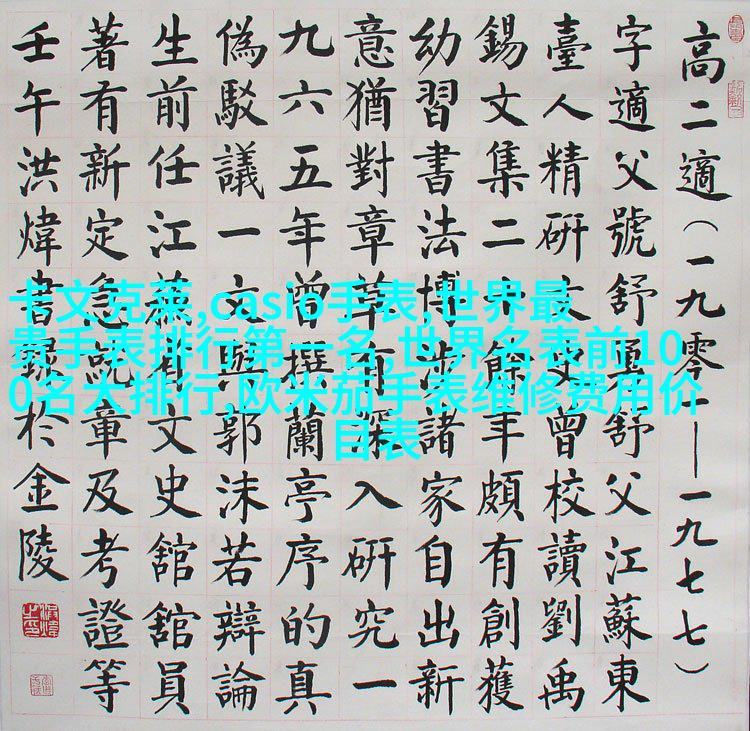 高二適（一九零一——一九七七）
字適父號舒鳧舒父江蘇東
臺人精研文史曾校讀劉禹
錫文集二十餘年頗有創獲
幼習書法博涉諸家自出新
意猶對章草有深入研究一
九六五年曾撰蘭亭序的真
偽駁議一文與郭沫若辯論
生前任江蘇省文史舘舘員
著有新定急就章及考證等
壬午洪煒書錄於金陵
卡文克莱,casio手表,世界最
贵手表排行第一名,世界名表前10
0名大排行,欧米茄手表维修费用价
目表